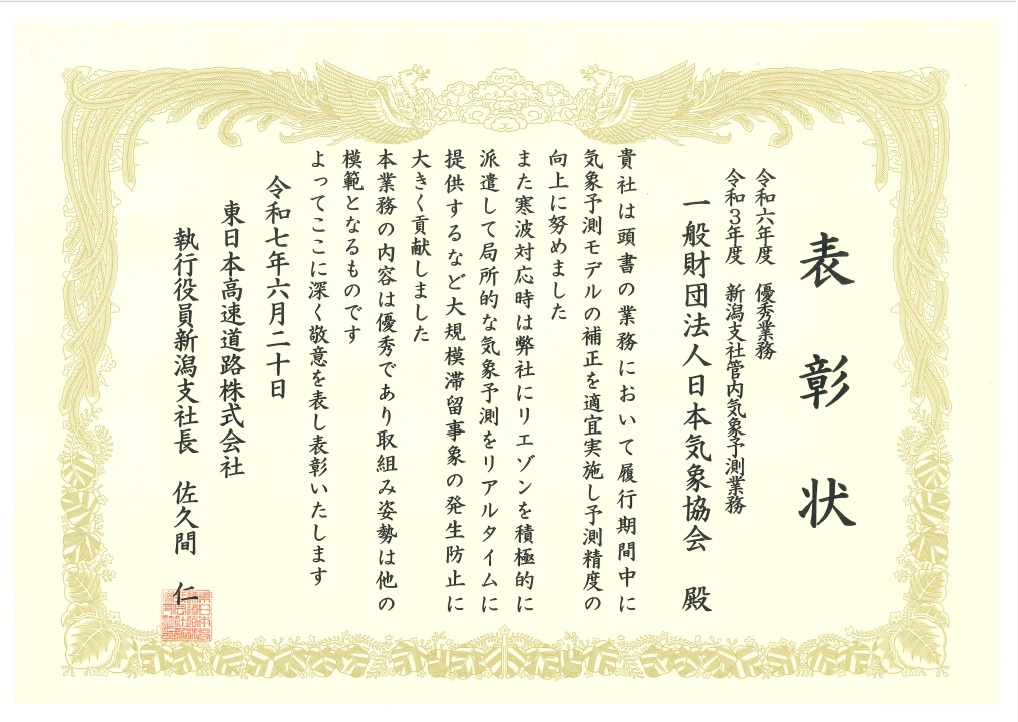 表彰状
令和六年度　優秀業務
令和３年度　新潟支社管内気象予測業務
一般財団法人日本気象協会　殿
貴社は頭書の業務において履行期間中に
気象予測モデルの補正を適宜実施し予測精度の
向上に努めました
また寒波対応時は弊社にリエゾンを積極的に
派遣して局所的な気象予測をリアルタイムに
提供するなど大規模滞留事象の発生防止に
大きく貢献しました
本業務の内容は優秀であり取組み姿勢は他の
模範となるものです
よってここに深く敬意を表し表彰いたします
令和七年六月二十日
東日本高速道路株式会社
執行役員新潟支社長　佐久間　仁